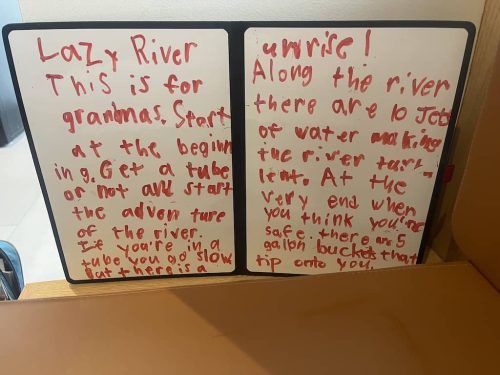 Lazy River
This is for
grandmas. Start
at the beginn
ing. Get a tube
or not and start
the adventure
of the river.
If you're in a
tube you go slow
But there is a
unrise!
Along the river
there are 10 Jets
of water making
the river turb-
lent. At the
very end when
you think you're
safe. there are 5
gallon buckets that
tip onto you.